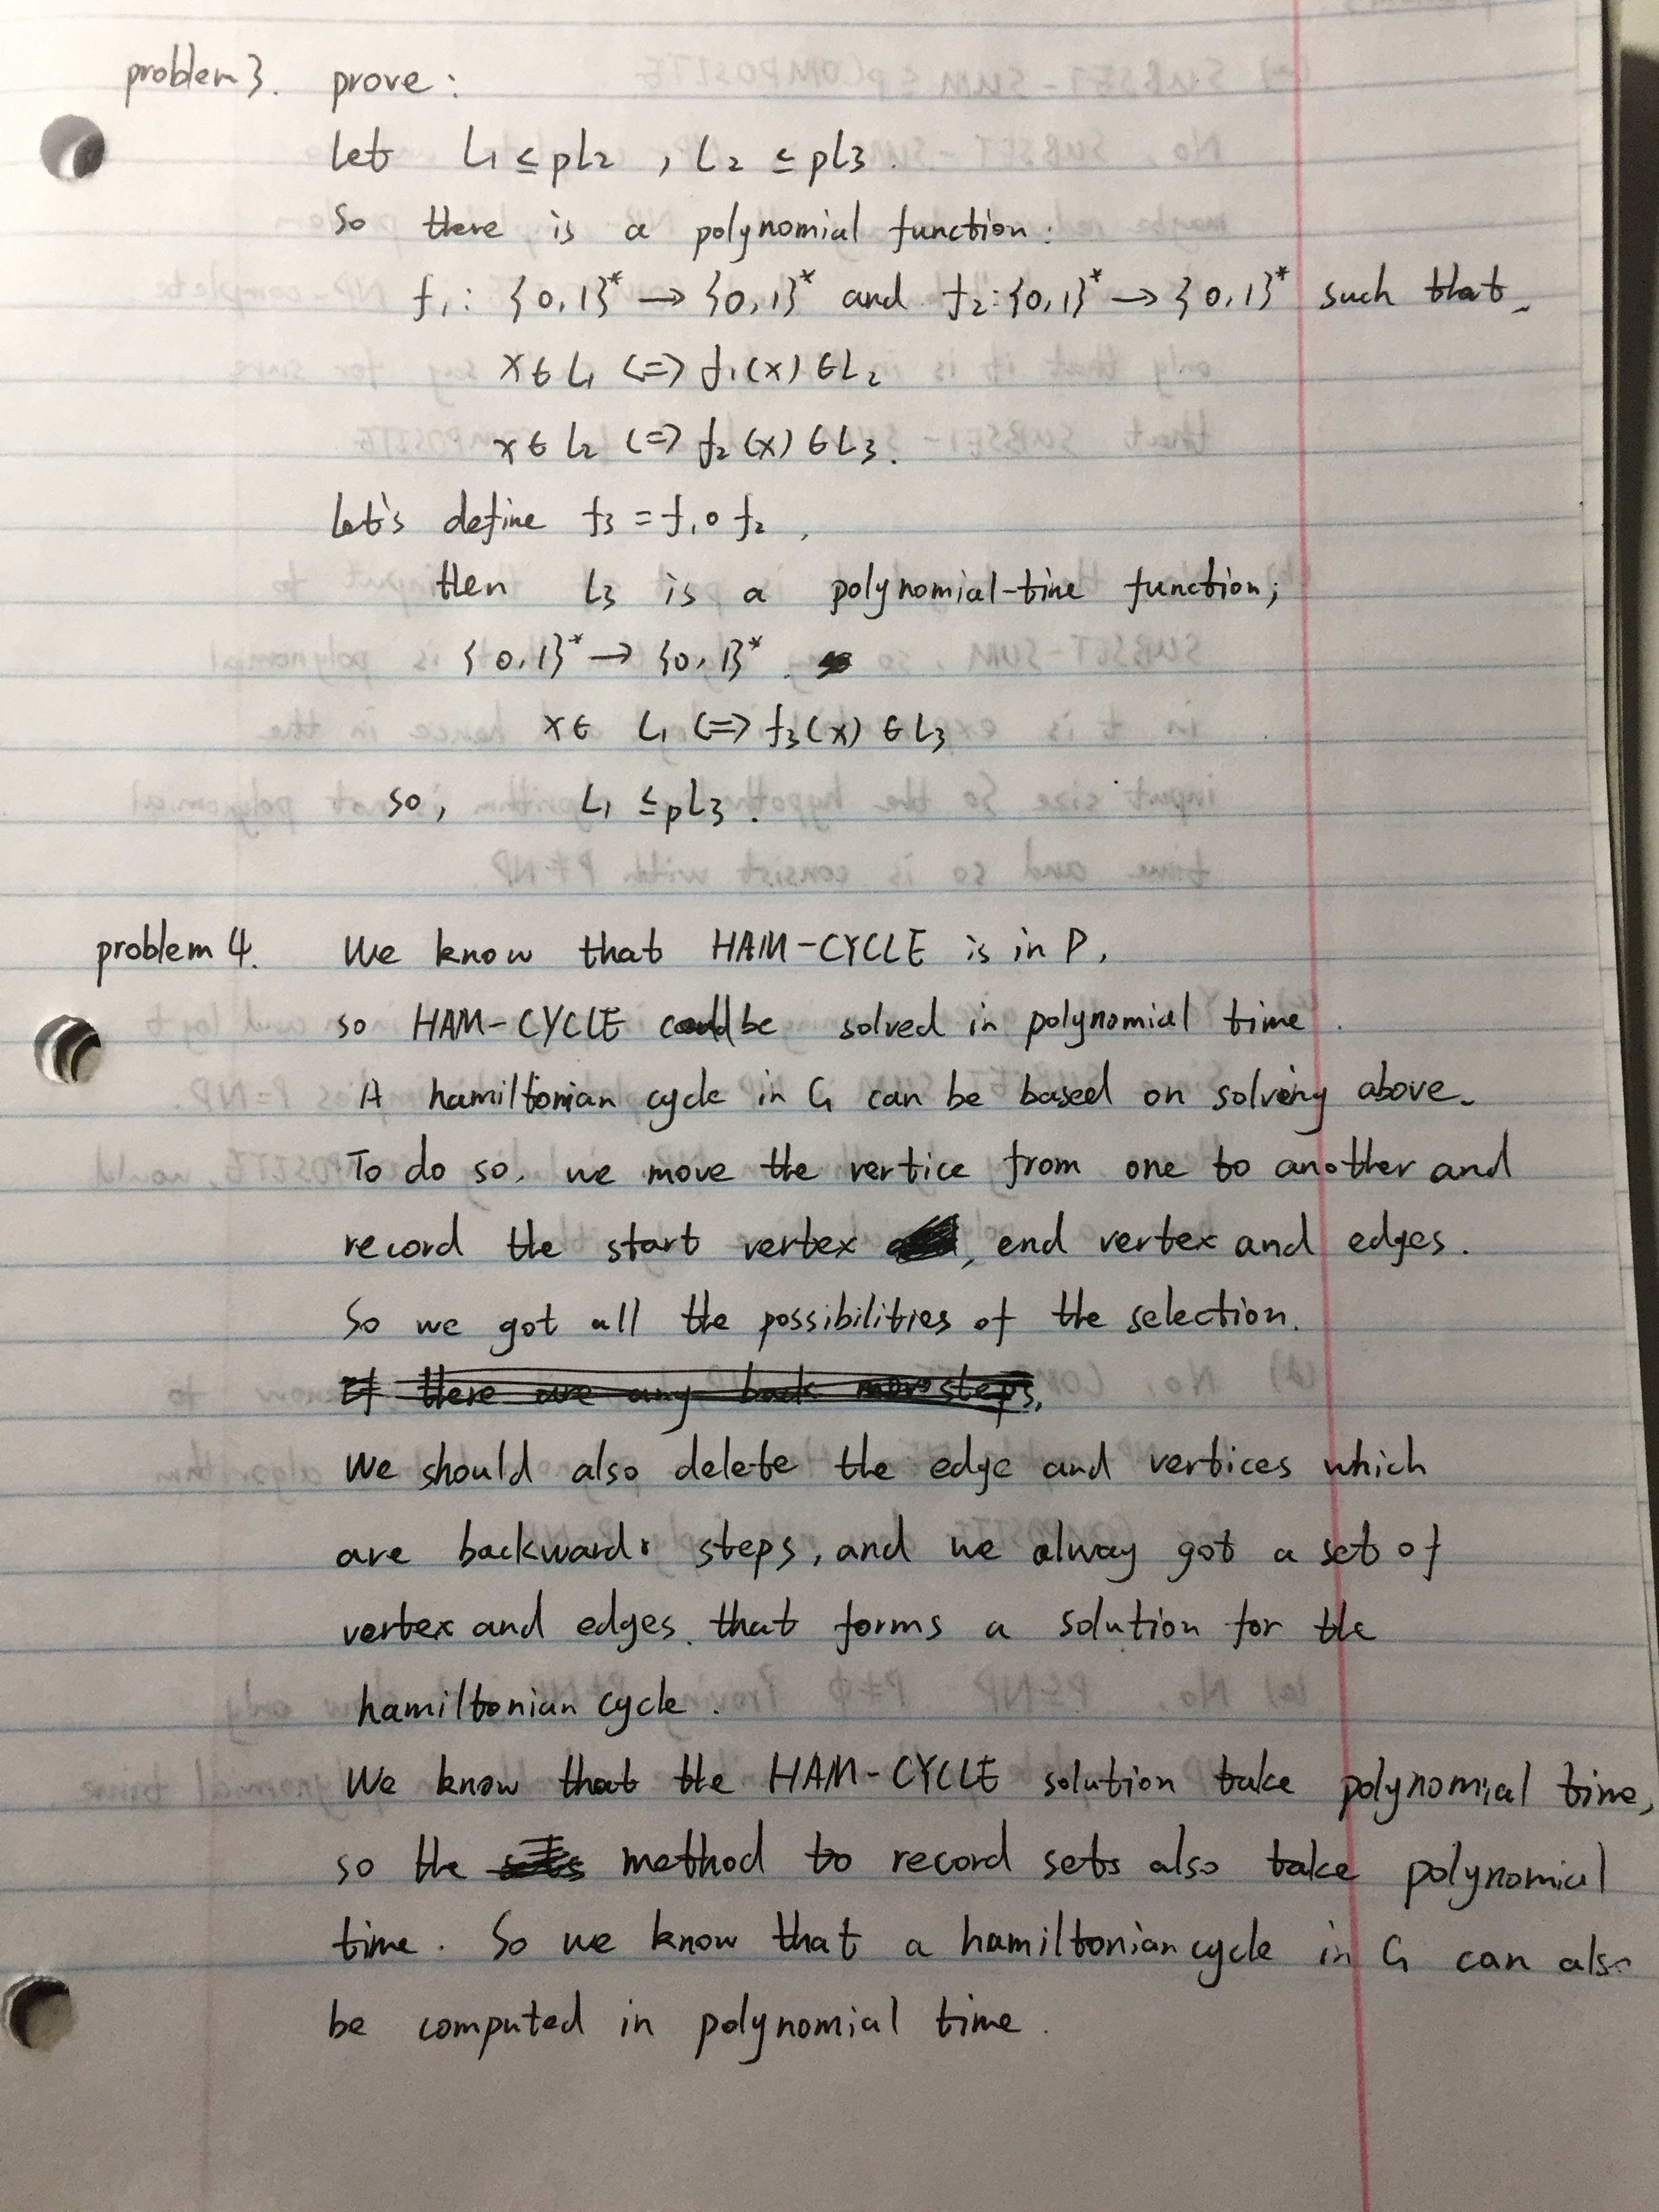 problem 3. prove:
Let L1 ≤pL2 , L2 ≤pL3.
So there is a polynomial function:
f1: {0,1}* → {0,1}* and f2: {0,1}* → {0,1}* such that
x∈L1 <=> f1(x)∈L2
x∈L2 <=> f2(x)∈L3.
Let's define f3 = f1∘f2,
then L3 is a polynomial-time function;
{0,1}* → {0,1}*.
x∈ L1 <=> f3(x)∈L3
so, L1 ≤pL3.
problem 4. We know that HAM-CYCLE is in P,
so HAM-CYCLE could be solved in polynomial time.
A hamiltonian cycle in G can be based on solving above.
To do so, we move the vertice from one to another and
record the start vertex, end vertex and edges.
So we got all the possibilities of the selection.
If there are any back move steps,
We should also delete the edge and vertices which
are backward steps, and we alway got a set of
vertex and edges that forms a solution for the
hamiltonian cycle.
We know that the HAM-CYCLE solution take polynomial time,
so the method to record sets also take polynomial
time. So we know that a hamiltonian cycle in G can also
be computed in polynomial time.